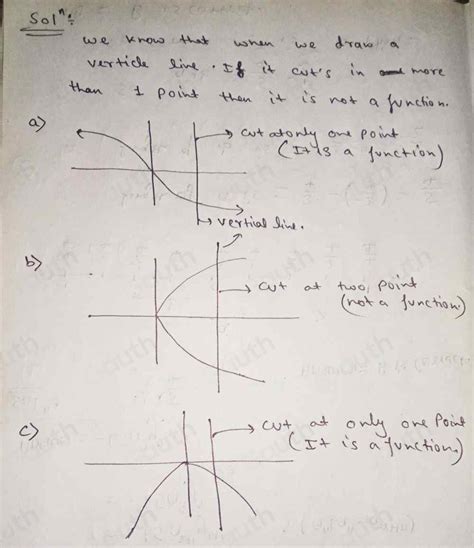 Solⁿ:
we know that when we draw a
verticle line. If it cut's in more
than 1 point then it is not a function.
a)
cut at only one point
(It is a function)
vertical line.
b)
cut at two point
(not a function)
c)
cut at only one point
(It is a function)